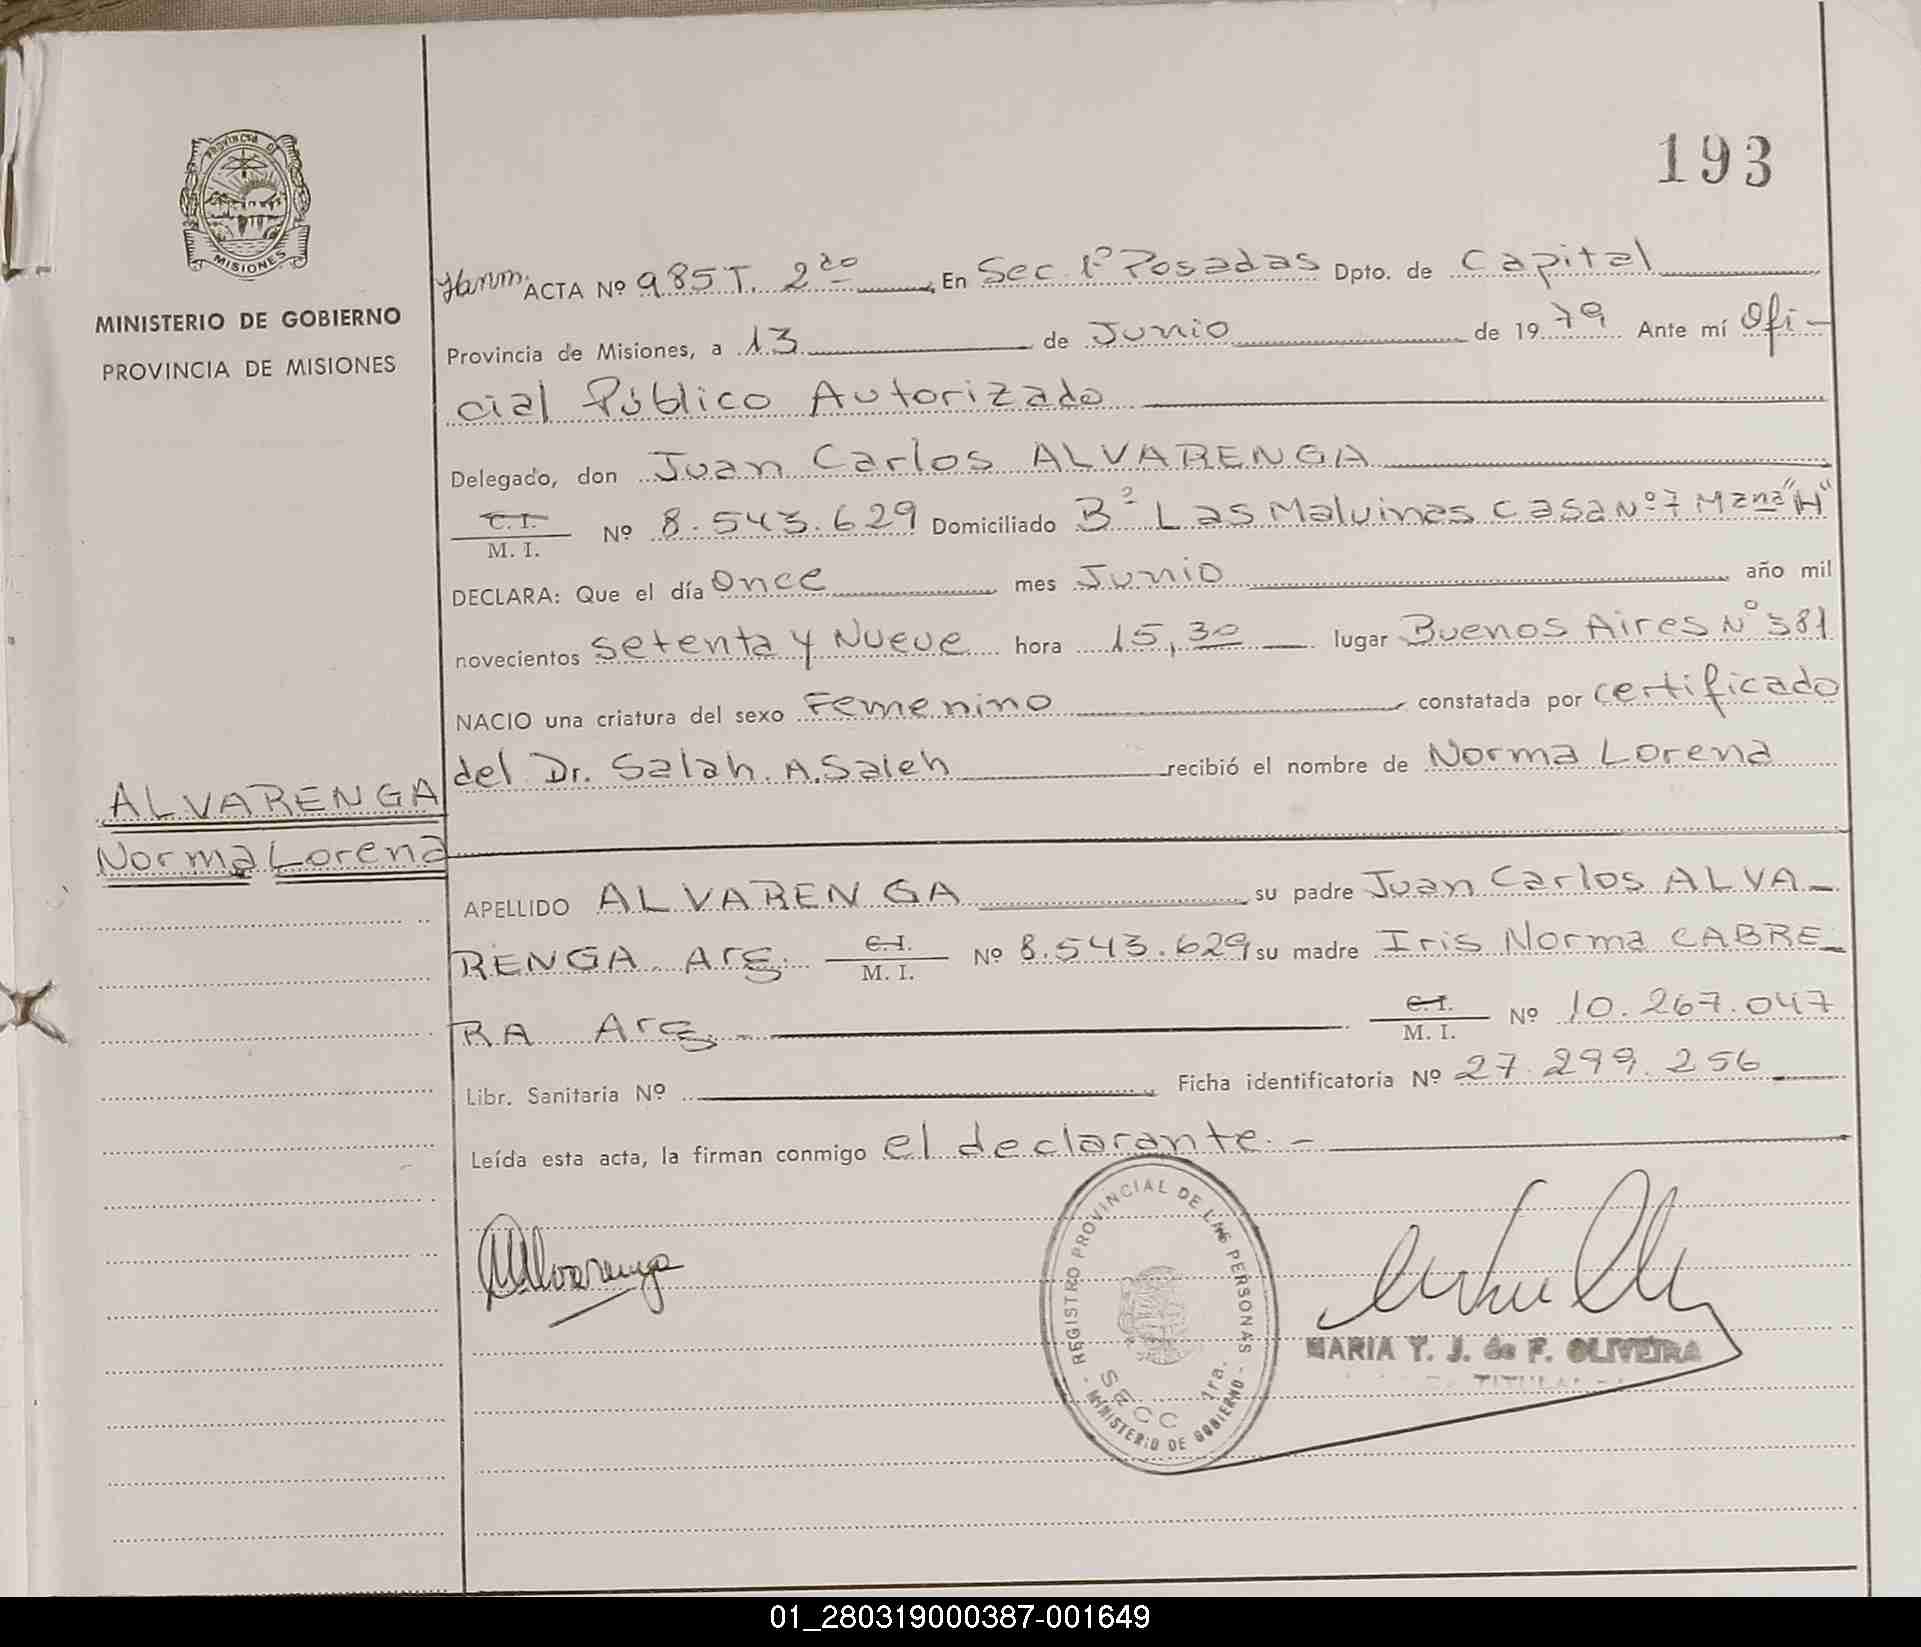 193
PROVINCIA DE
MISIONES
MINISTERIO DE GOBIERNO
PROVINCIA DE MISIONES
ALVARENGA
Norma Lorena
ACTA Nº 985 T. 2do En Sec 1º Posadas Dpto. de Capital
Provincia de Misiones, a 13 de Junio de 1979 Ante mí Ofi-
cial Público Autorizado
Delegado, don Juan Carlos ALVARENGA
C. I.
M. I. Nº 8.543.629 Domiciliado Bº Las Malvinas casa Nº 7 Mzna "H"
DECLARA: Que el día Once mes Junio año mil
novecientos setenta y Nueve hora 15,30 lugar Buenos Aires Nº 581
NACIO una criatura del sexo Femenino constatada por certificado
del Dr. Salah. A. Saleh recibió el nombre de Norma Lorena
APELLIDO ALVARENGA su padre Juan Carlos ALVA-
RENGA. Arg. C. I. M. I. Nº 8.543.629 su madre Iris Norma CABRE-
RA Arg.- C. I. M. I. Nº 10.267.047
Libr. Sanitaria Nº Ficha identificatoria Nº 27.299.256
Leída esta acta, la firman conmigo el declarante.-
Alvarenga
REGISTRO PROVINCIAL DE LAS PERSONAS
Secc 1ra.
- MINISTERIO DE GOBIERNO -
MARIA Y. J. de F. OLIVEIRA
TITULAR
01_280319000387-001649